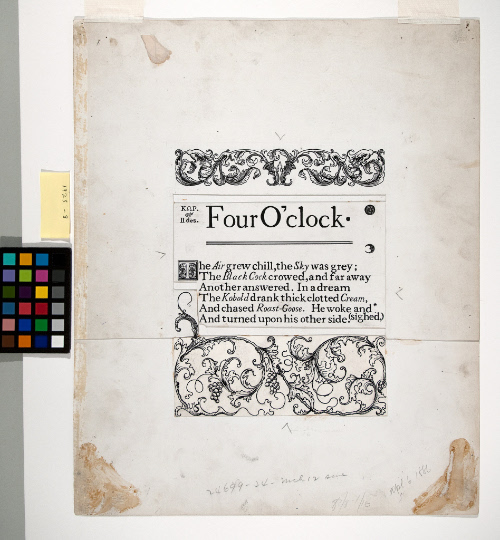 K.O.P.
of
II des.
Four O'clock.
The Air grew chill, the Sky was grey;
The Black Cock crowed, and far away
Another answered. In a dream
The Kobold drank thick clotted Cream,
And chased Roast-Goose. He woke and
And turned upon his other side. (sighed,)
24699-24-